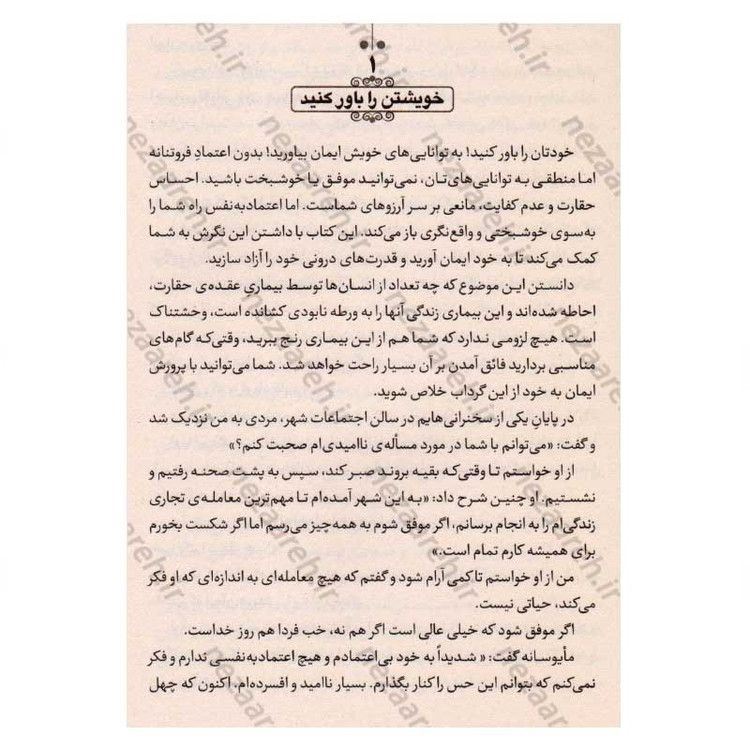 ۱
خویشتن را باور کنید
خودتان را باور کنید! به توانایی‌های خویش ایمان بیاورید! بدون اعتمادِ فروتنانه
اما منطقی به توانایی‌های‌تان، نمی‌توانید موفق یا خوشبخت باشید. احساس
حقارت و عدم کفایت، مانعی بر سر آرزوهای شماست. اما اعتمادبه‌نفس راه شما را
به‌سوی خوشبختی و واقع‌نگری باز می‌کند. این کتاب با داشتن این نگرش به شما
کمک می‌کند تا به خود ایمان آورید و قدرت‌های درونی خود را آزاد سازید.
دانستن این موضوع که چه تعداد از انسان‌ها توسط بیماریِ عقده‌ی حقارت،
احاطه شده‌اند و این بیماری زندگی آنها را به ورطه نابودی کشانده است، وحشتناک
است. هیچ لزومی ندارد که شما هم از این بیماری رنج ببرید، وقتی‌که گام‌های
مناسبی بردارید فائق آمدن بر آن بسیار راحت خواهد شد. شما می‌توانید با پرورش
ایمان به خود از این گرداب خلاص شوید.
در پایانِ یکی از سخنرانی‌هایم در سالن اجتماعات شهر، مردی به من نزدیک شد
و گفت: «می‌توانم با شما در مورد مسأله‌ی ناامیدی‌ام صحبت کنم؟»
از او خواستم تا وقتی‌که بقیه بروند صبر کند، سپس به پشت صحنه رفتیم و
نشستیم. او چنین شرح داد: «به این شهر آمده‌ام تا مهم‌ترین معامله‌ی تجاری
زندگی‌ام را به انجام برسانم، اگر موفق شوم به همه‌چیز می‌رسم اما اگر شکست بخورم
برای همیشه کارم تمام است.»
من از او خواستم تا کمی آرام شود و گفتم که هیچ معامله‌ای به اندازه‌ای که او فکر
می‌کند، حیاتی نیست.
اگر موفق شود که خیلی عالی است اگر هم نه، خب فردا هم روز خداست.
مأیوسانه گفت: « شدیداً به خود بی‌اعتمادم و هیچ اعتمادبه‌نفسی ندارم و فکر
نمی‌کنم که بتوانم این حس را کنار بگذارم. بسیار ناامید و افسرده‌ام. اکنون که چهل
nezaareh.ir